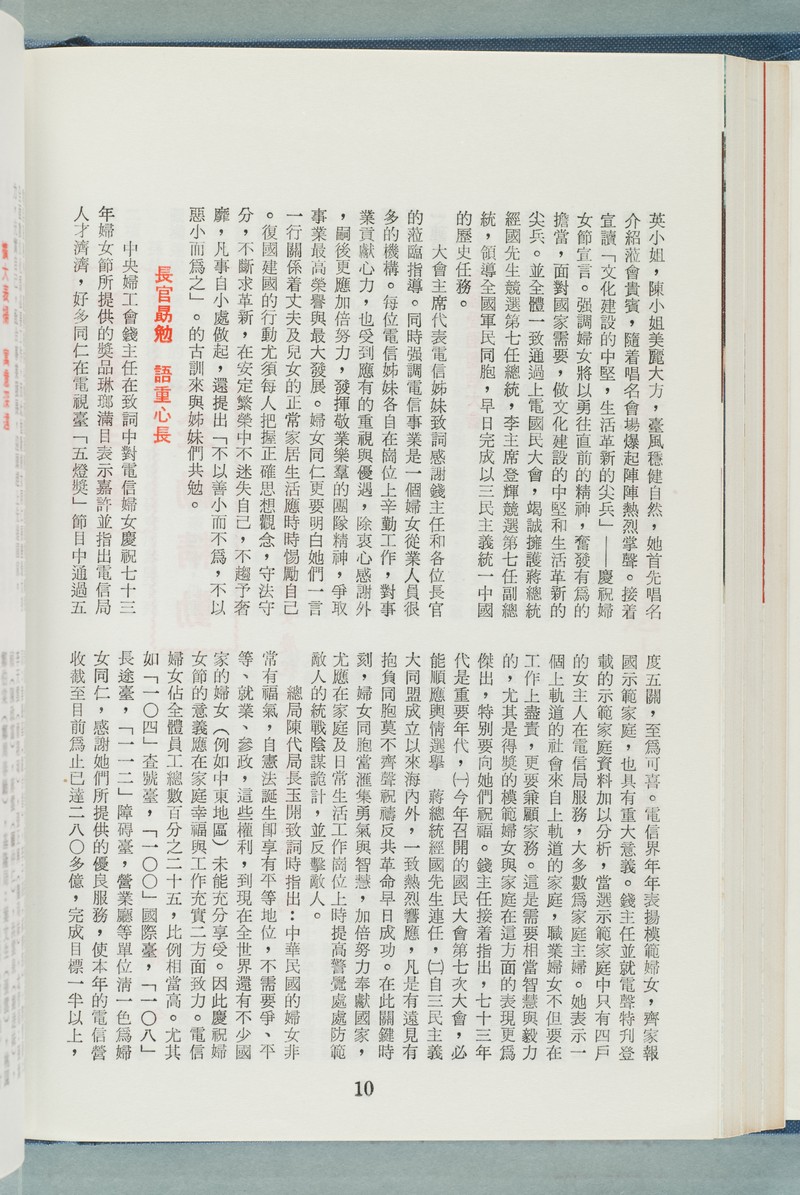 英小姐，陳小姐美麗大方，臺風穩健自然，她首先唱名
介紹蒞會貴賓，隨着唱名會場爆起陣陣熱烈掌聲。接着
宣讀「文化建設的中堅，生活革新的尖兵」——慶祝婦
女節宣言。强調婦女將以勇往直前的精神，奮發有爲的
擔當，面對國家需要，做文化建設的中堅和生活革新的
尖兵。並全體一致通過上電國民大會，竭誠擁護蔣總統
經國先生競選第七任總統，李主席登輝競選第七任副總
統，領導全國軍民同胞，早日完成以三民主義統一中國
的歷史任務。
大會主席代表電信姊妹致詞感謝錢主任和各位長官
的蒞臨指導。同時强調電信事業是一個婦女從業人員很
多的機構。每位電信姊妹各自在崗位上辛勤工作，對事
業貢獻心力，也受到應有的重視與優遇，除衷心感謝外
，嗣後更應加倍努力，發揮敬業樂羣的團隊精神，爭取
事業最高榮譽與最大發展。婦女同仁更要明白她們一言
一行關係着丈夫及兒女的正常家居生活應時時惕勵自己
。復國建國的行動尤須每人把握正確思想觀念，守法守
分，不斷求革新，在安定繁榮中不迷失自己，不趨予奢
靡，凡事自小處做起，還提出「不以善小而不爲，不以
惡小而爲之」。的古訓來與姊妹們共勉。
長官勗勉　語重心長
中央婦工會錢主任在致詞中對電信婦女慶祝七十三
年婦女節所提供的獎品琳瑯滿目表示嘉許並指出電信局
人才濟濟，好多同仁在電視臺「五燈獎」節目中通過五
度五關，至爲可喜。電信界年年表揚模範婦女，齊家報
國示範家庭，也具有重大意義。錢主任並就電聲特刋登
載的示範家庭資料加以分析，當選示範家庭中只有四戶
的女主人在電信局服務，大多數爲家庭主婦。她表示一
個上軌道的社會來自上軌道的家庭，職業婦女不但要在
工作上盡責，更要兼顧家務。這是需要相當智慧與毅力
的，尤其是得獎的模範婦女與家庭在這方面的表現更爲
傑出，特別要向她們祝福。錢主任接着指出，七十三年
代是重要年代，㈠今年召開的國民大會第七次大會，必
能順應輿情選舉　蔣總統經國先生連任，㈡自三民主義
大同盟成立以來海內外，一致熱烈響應，凡是有遠見有
抱負同胞莫不齊聲祝禱反共革命早日成功。在此關鍵時
刻，婦女同胞當滙集勇氣與智慧，加倍努力奉獻國家，
尤應在家庭及日常生活工作崗位上時提高警覺處處防範
敵人的統戰陰謀詭計，並反擊敵人。
總局陳代局長玉開致詞時指出：中華民國的婦女非
常有福氣，自憲法誕生卽享有平等地位，不需要爭、平
等、就業、參政，這些權利，到現在全世界還有不少國
家的婦女（例如中東地區）未能充分享受。因此慶祝婦
女節的意義應在家庭幸福與工作充實二方面致力。電信
婦女佔全體員工總數百分之二十五，比例相當高。尤其
如「一〇四」查號臺，「一〇〇」國際臺，「一〇八」
長途臺，「一一二」障碍臺，營業廳等單位淸一色爲婦
女同仁，感謝她們所提供的優良服務，使本年的電信營
收截至目前爲止已達二八〇多億，完成目標一半以上，
10